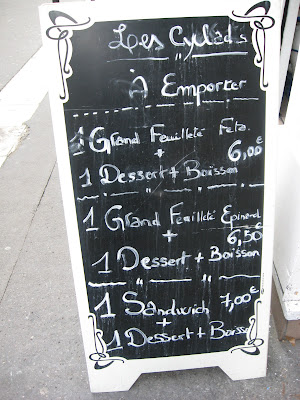 Les Cyclads
"
À Emporter
1 Grand Feuilleté Feta.
+ 6,00€
1 Dessert + Boisson
1 Grand Feuilleté Epinard
+ 6,50€
1 Dessert + Boisson
1 Sandwich 7,00€
+
1 Dessert + Boisson